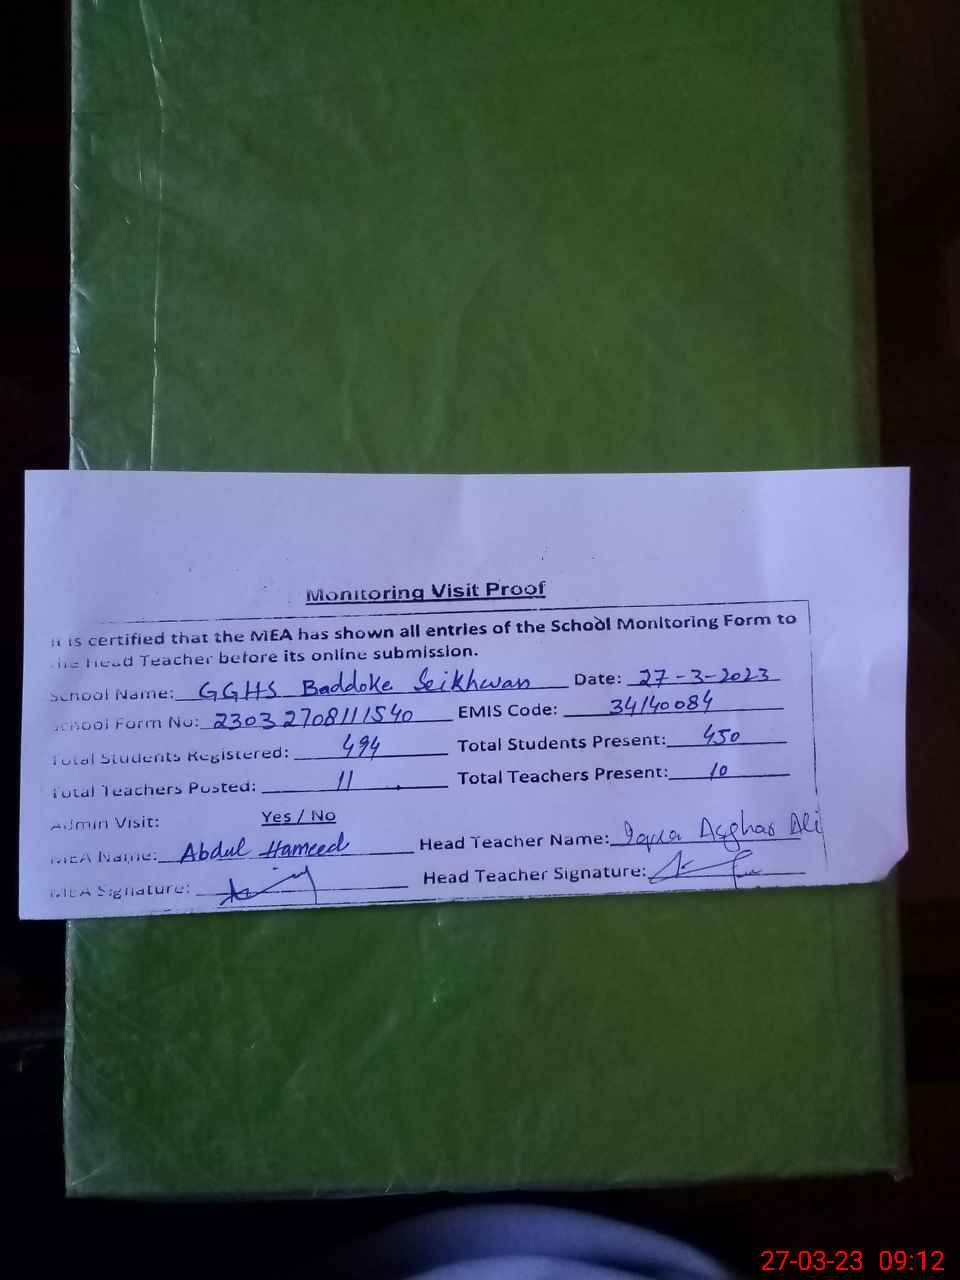 Monitoring Visit Proof
It is certified that the MEA has shown all entries of the School Monitoring Form to
the Head Teacher before its online submission.
School Name: GGHS Baddoke Seikhwan Date: 27-3-2023
School Form No: 23032708111540 EMIS Code: 34140084
Total Students Registered: 494 Total Students Present: 450
Total Teachers Posted: 11 Total Teachers Present: 10
Admin Visit: Yes / No
MEA Name: Abdul Hameed Head Teacher Name: Iqra Asghar Ali
MEA Signature: Head Teacher Signature:
27-03-23 09:12